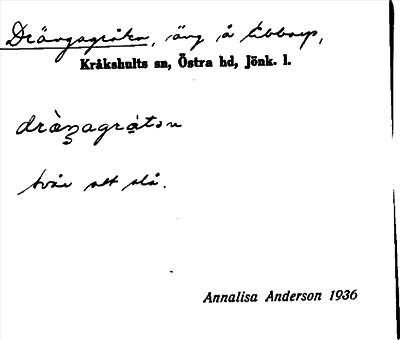 Drängagråten, äng å Ebbarp,
Kråkshults sn, Östra hd, Jönk. l.
dràŋagrátən
svår att slå.
Annalisa Anderson 1936